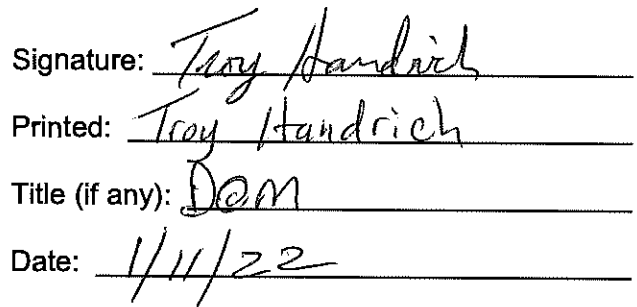 Signature: Troy Handrich
Printed: Troy Handrich
Title (if any): DOM
Date: 1/11/22